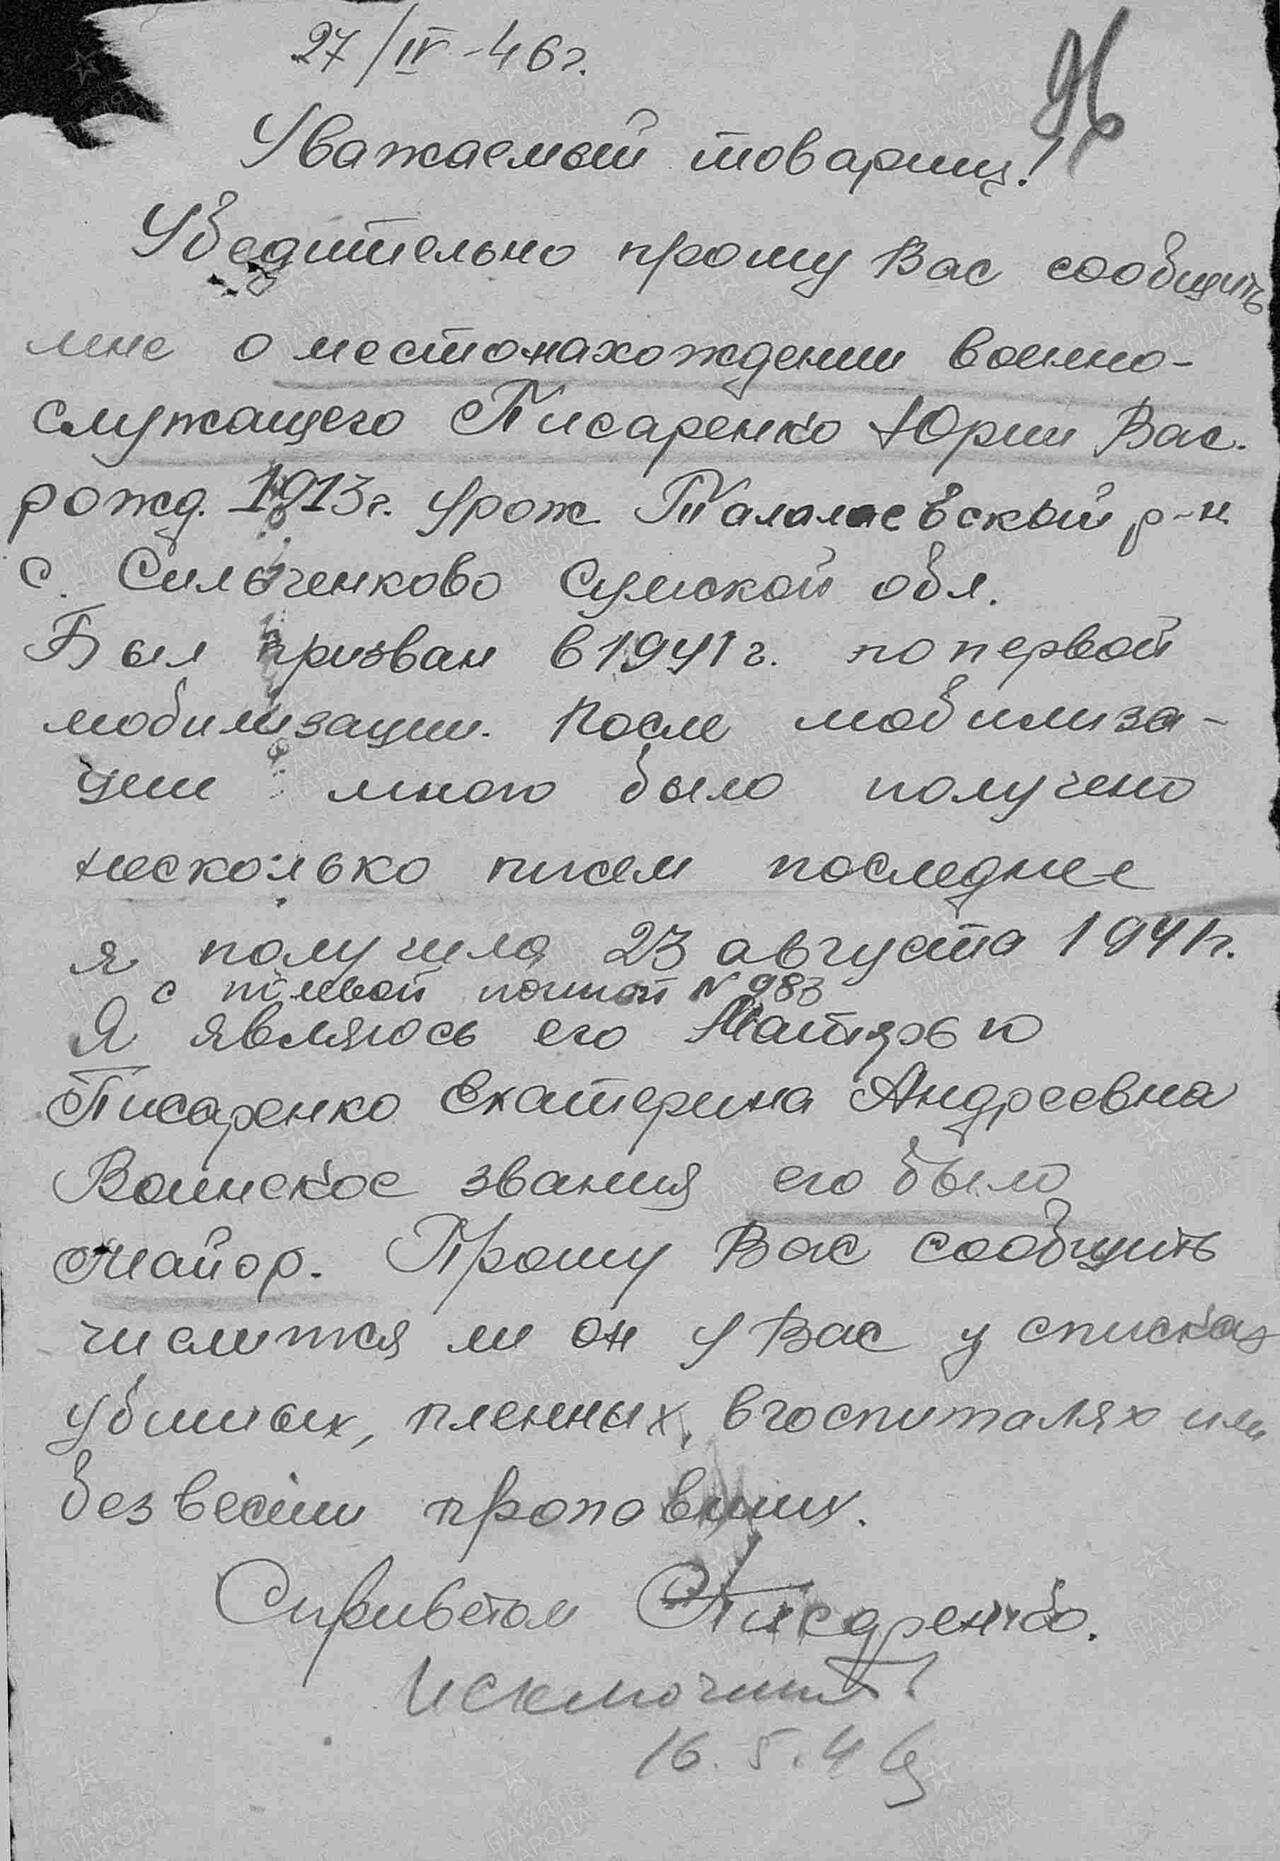 27/IV-46г.
96
Уважаемый товарищ!
Убедительно прошу Вас сообщить
мне о местонахождении военно-
служащего Писаренко Юрии Вас.
рожд. 1913г. урож. Талалаевский р-н
с. Сильченково Сумской обл.
Был призван в 1941г. по первой
мобилизации. После мобилиза-
ции мною было получено
несколько писем последнее
я получила 23 августа 1941г.
с полевой почтой № 983
Я являюсь его Матерью
Писаренко Екатерина Андреевна
Воинское звания его было
майор. Прошу Вас сообщить
числится ли он у Вас у списках
убитых, пленных, в госпиталях или
без вести проповших.
С приветом Писаренко.
Исключить!
16.5.46
ПАМЯТЬ НАРОДА